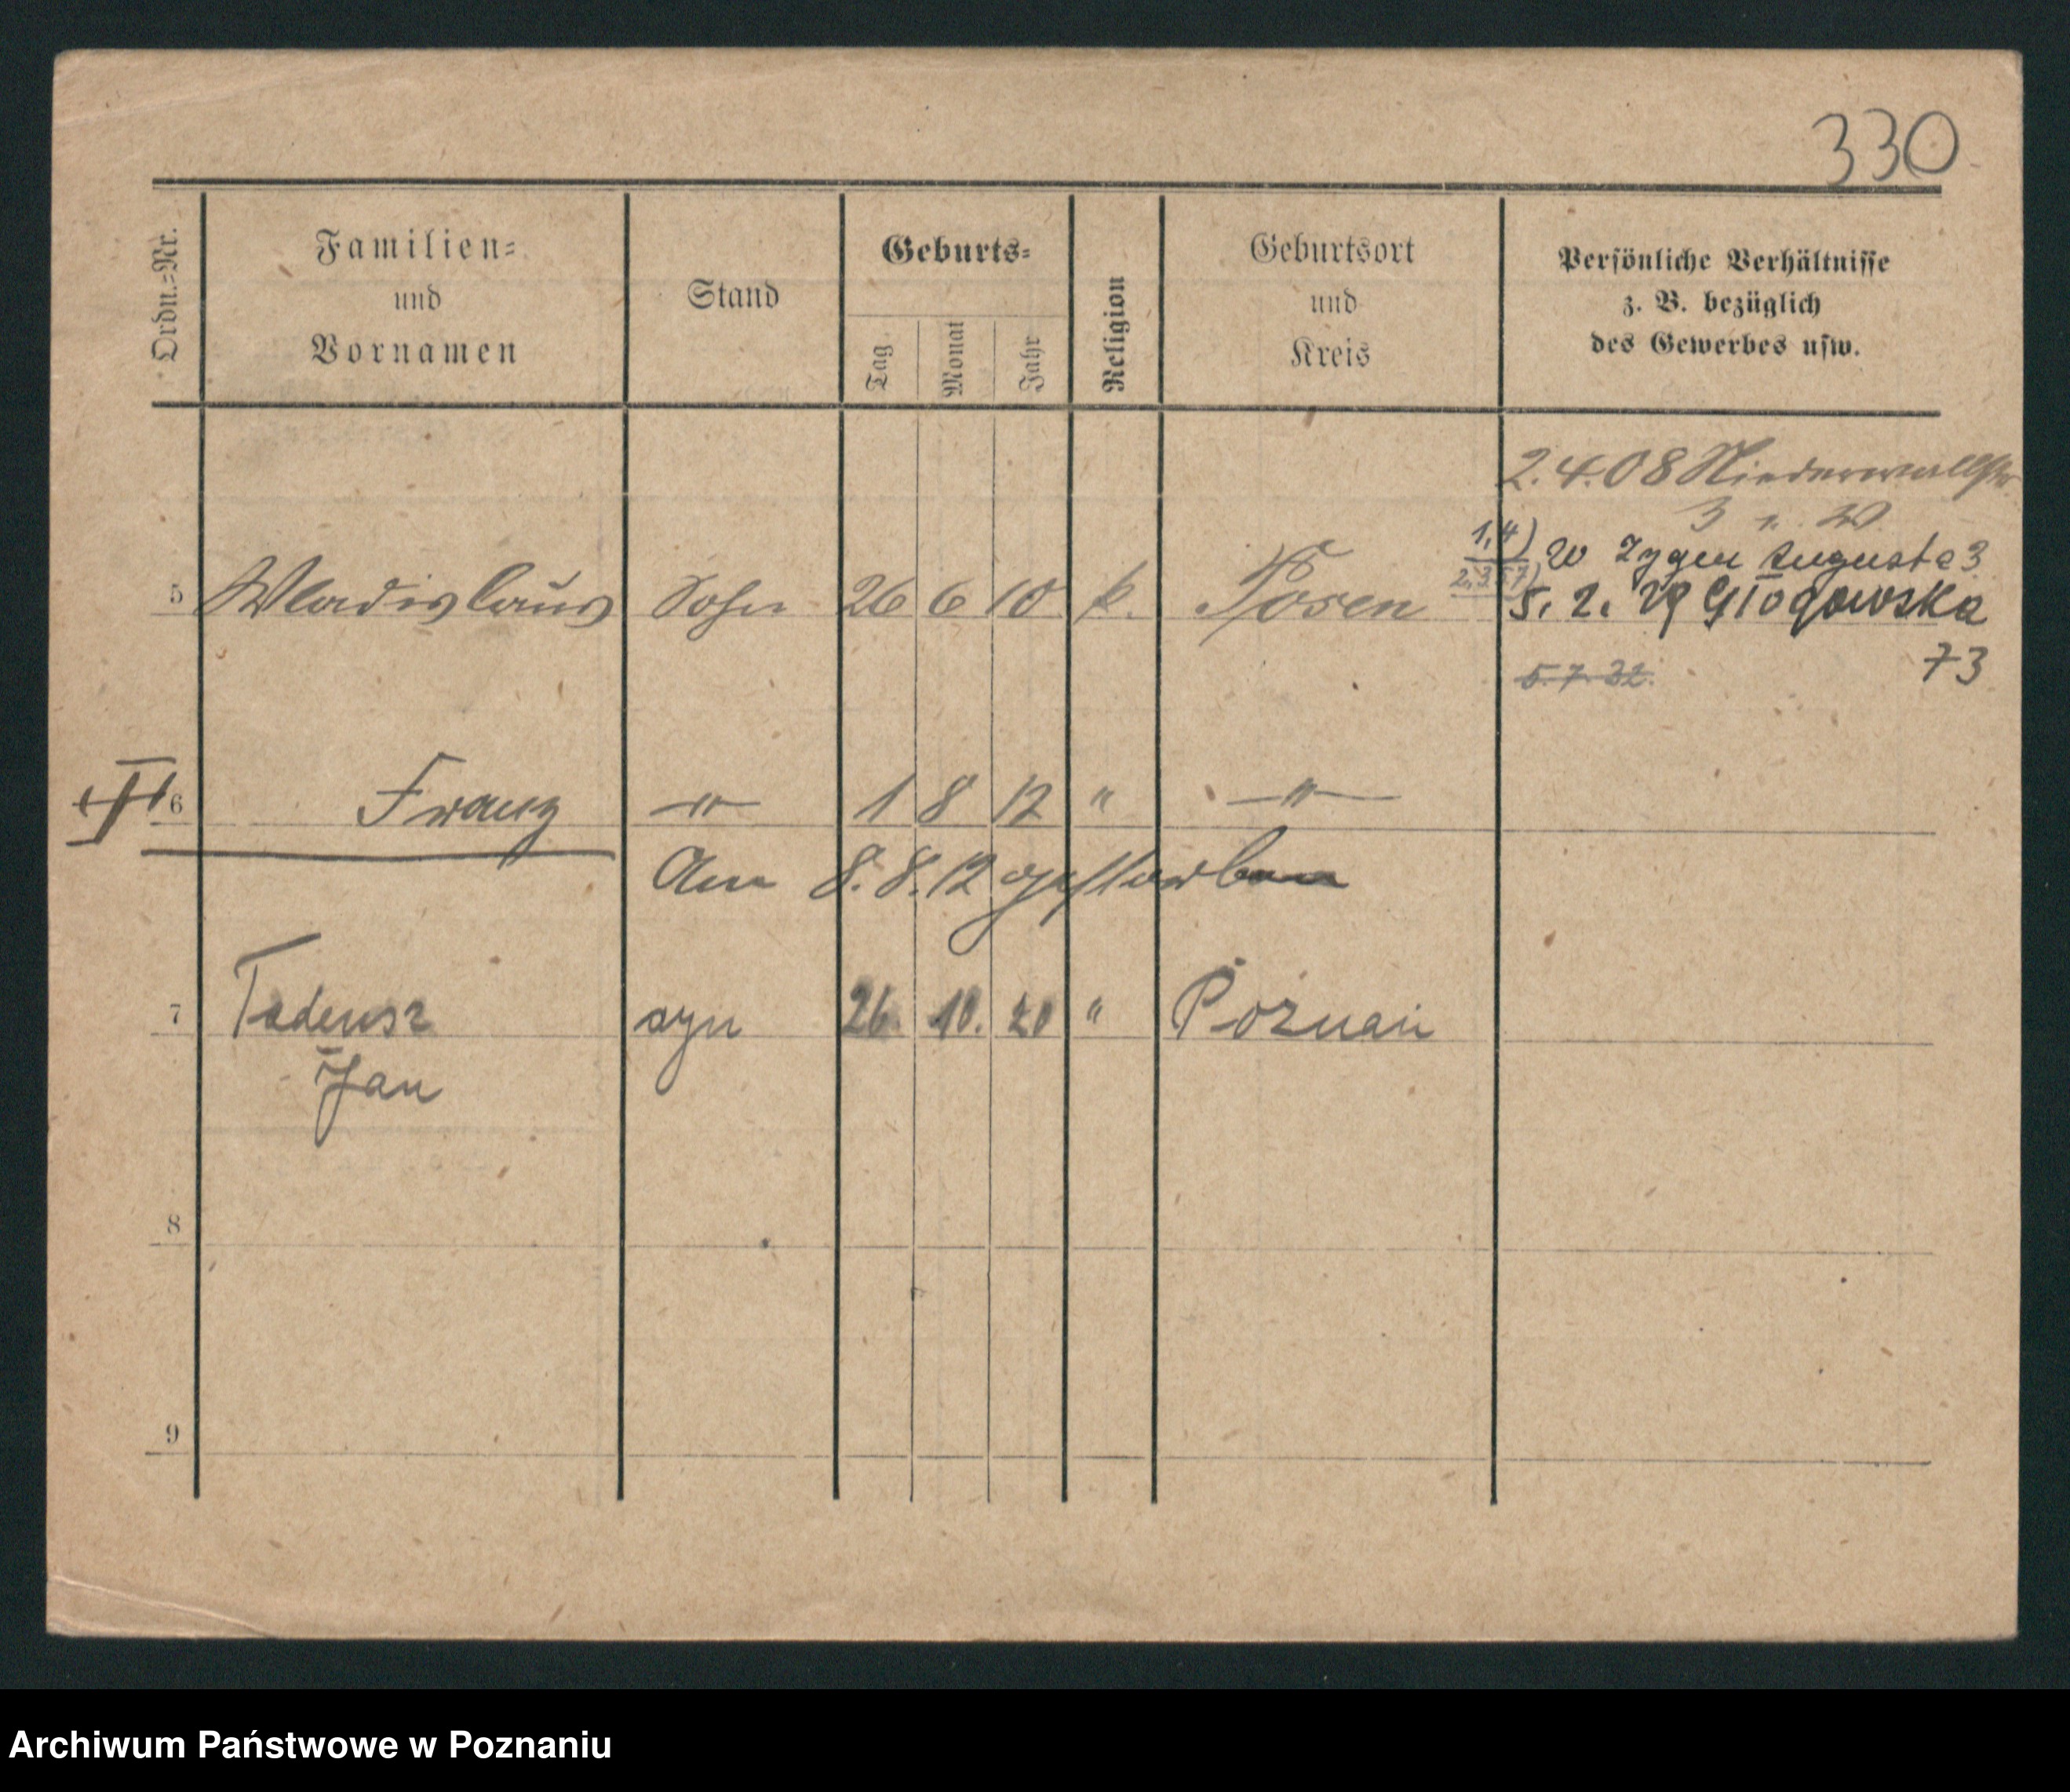 330
Ordn.=Nr.
Familien=
und
Vornamen
Stand
Geburts=
Tag
Monat
Jahr
Religion
Geburtsort
und
Kreis
Persönliche Verhältnisse
z. B. bezüglich
des Gewerbes usw.
2.4.08 Niederwallstr
3
1,4) Zygm Augusta 3
5 Wladislaus Sohn 26 6 10 k. Posen 5. 2. 29 Głogowska
73
5.7.32.
6 Franz —"— 1 8 12 " —"—
Am 8.8.12 gestorben
7 Tadeusz syn 26. 10. 20 " Poznań
Jan
8
9
Archiwum Państwowe w Poznaniu